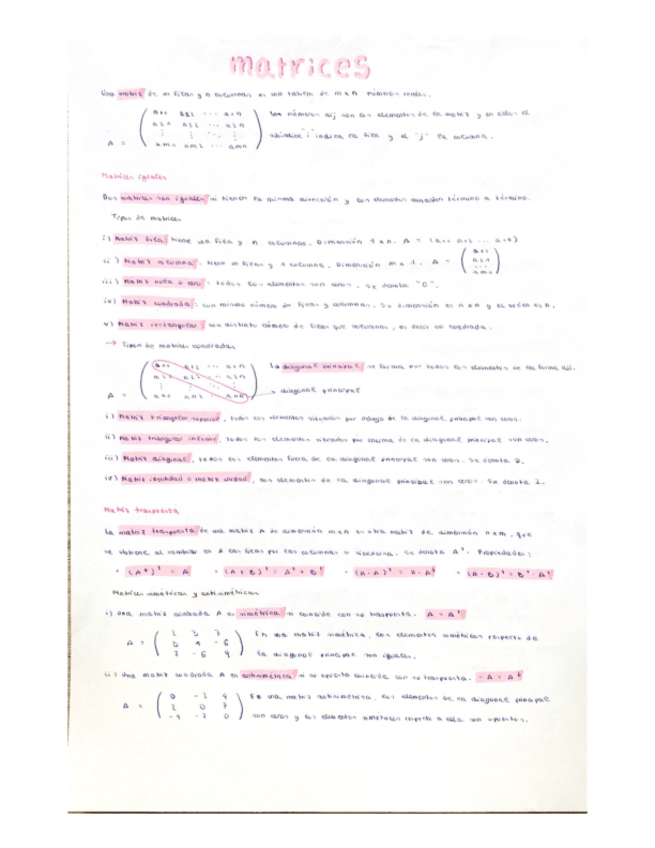 matrices
Una matriz de m filas y n columnas es una tabla de m x n números reales.
A = ( a11 a12 ... a1n
a21 a22 ... a2n
⋮ ⋮ ⋱ ⋮
am1 am2 ... amn )
Los números aij son los elementos de la matriz y en ellos el
subíndice "i" indica la fila y el "j" la columna.
Matrices iguales
Dos matrices son iguales si tienen la misma dimensión y los elementos coinciden término a término.
Tipos de matrices
i) Matriz fila: tiene una fila y n columnas. Dimensión 1 x n. A = (a11 a12 ... a1n)
ii) Matriz columna: tiene m filas y 1 columna. Dimensión m x 1. A = ( a11 a21 ... am1 )
iii) Matriz nula o cero: todos los elementos son ceros. Se denota "0".
iv) Matriz cuadrada: con mismo número de filas y columnas. Su dimensión es n x n y el orden es n.
v) Matriz rectangular: con distinto número de filas que columnas, es decir no cuadrada.
→ Tipos de matrices cuadradas
A = ( a11 a12 ... a1n
a21 a22 ... a2n
⋮ ⋮ ⋱ ⋮
an1 an2 ... ann )
La diagonal principal se forma por todos los elementos de la forma aii.
→ diagonal principal
i) Matriz triangular superior, todos los elementos situados por debajo de la diagonal principal son ceros.
ii) Matriz triangular inferior, todos los elementos situados por encima de la diagonal principal son ceros.
iii) Matriz diagonal, todos los elementos fuera de la diagonal principal son ceros. Se denota D.
iv) Matriz identidad o matriz unidad, los elementos de la diagonal principal son unos. Se denota I.
Matriz traspuesta
La matriz traspuesta de una matriz A de dimensión m x n es otra matriz de dimensión n x m, que
se obtiene al cambiar en A las filas por las columnas o viceversa. Se denota Aᵗ. Propiedades:
• (Aᵗ)ᵗ = A • (A + B)ᵗ = Aᵗ + Bᵗ • (k · A)ᵗ = k · Aᵗ • (A · B)ᵗ = Bᵗ · Aᵗ
Matrices simétricas y antisimétricas
i) Una matriz cuadrada A es simétrica si coincide con su traspuesta. A = Aᵗ
A = ( 2 5 7
5 4 -6
7 -6 9 )
En una matriz simétrica, los elementos simétricos respecto de
la diagonal principal son iguales.
ii) Una matriz cuadrada A es antisimétrica si su opuesta coincide con su traspuesta. -A = Aᵗ
A = ( 0 -2 9
2 0 7
-9 -7 0 )
En una matriz antisimétrica, los elementos de la diagonal principal
son ceros y los elementos simétricos respecto a ella son opuestos.